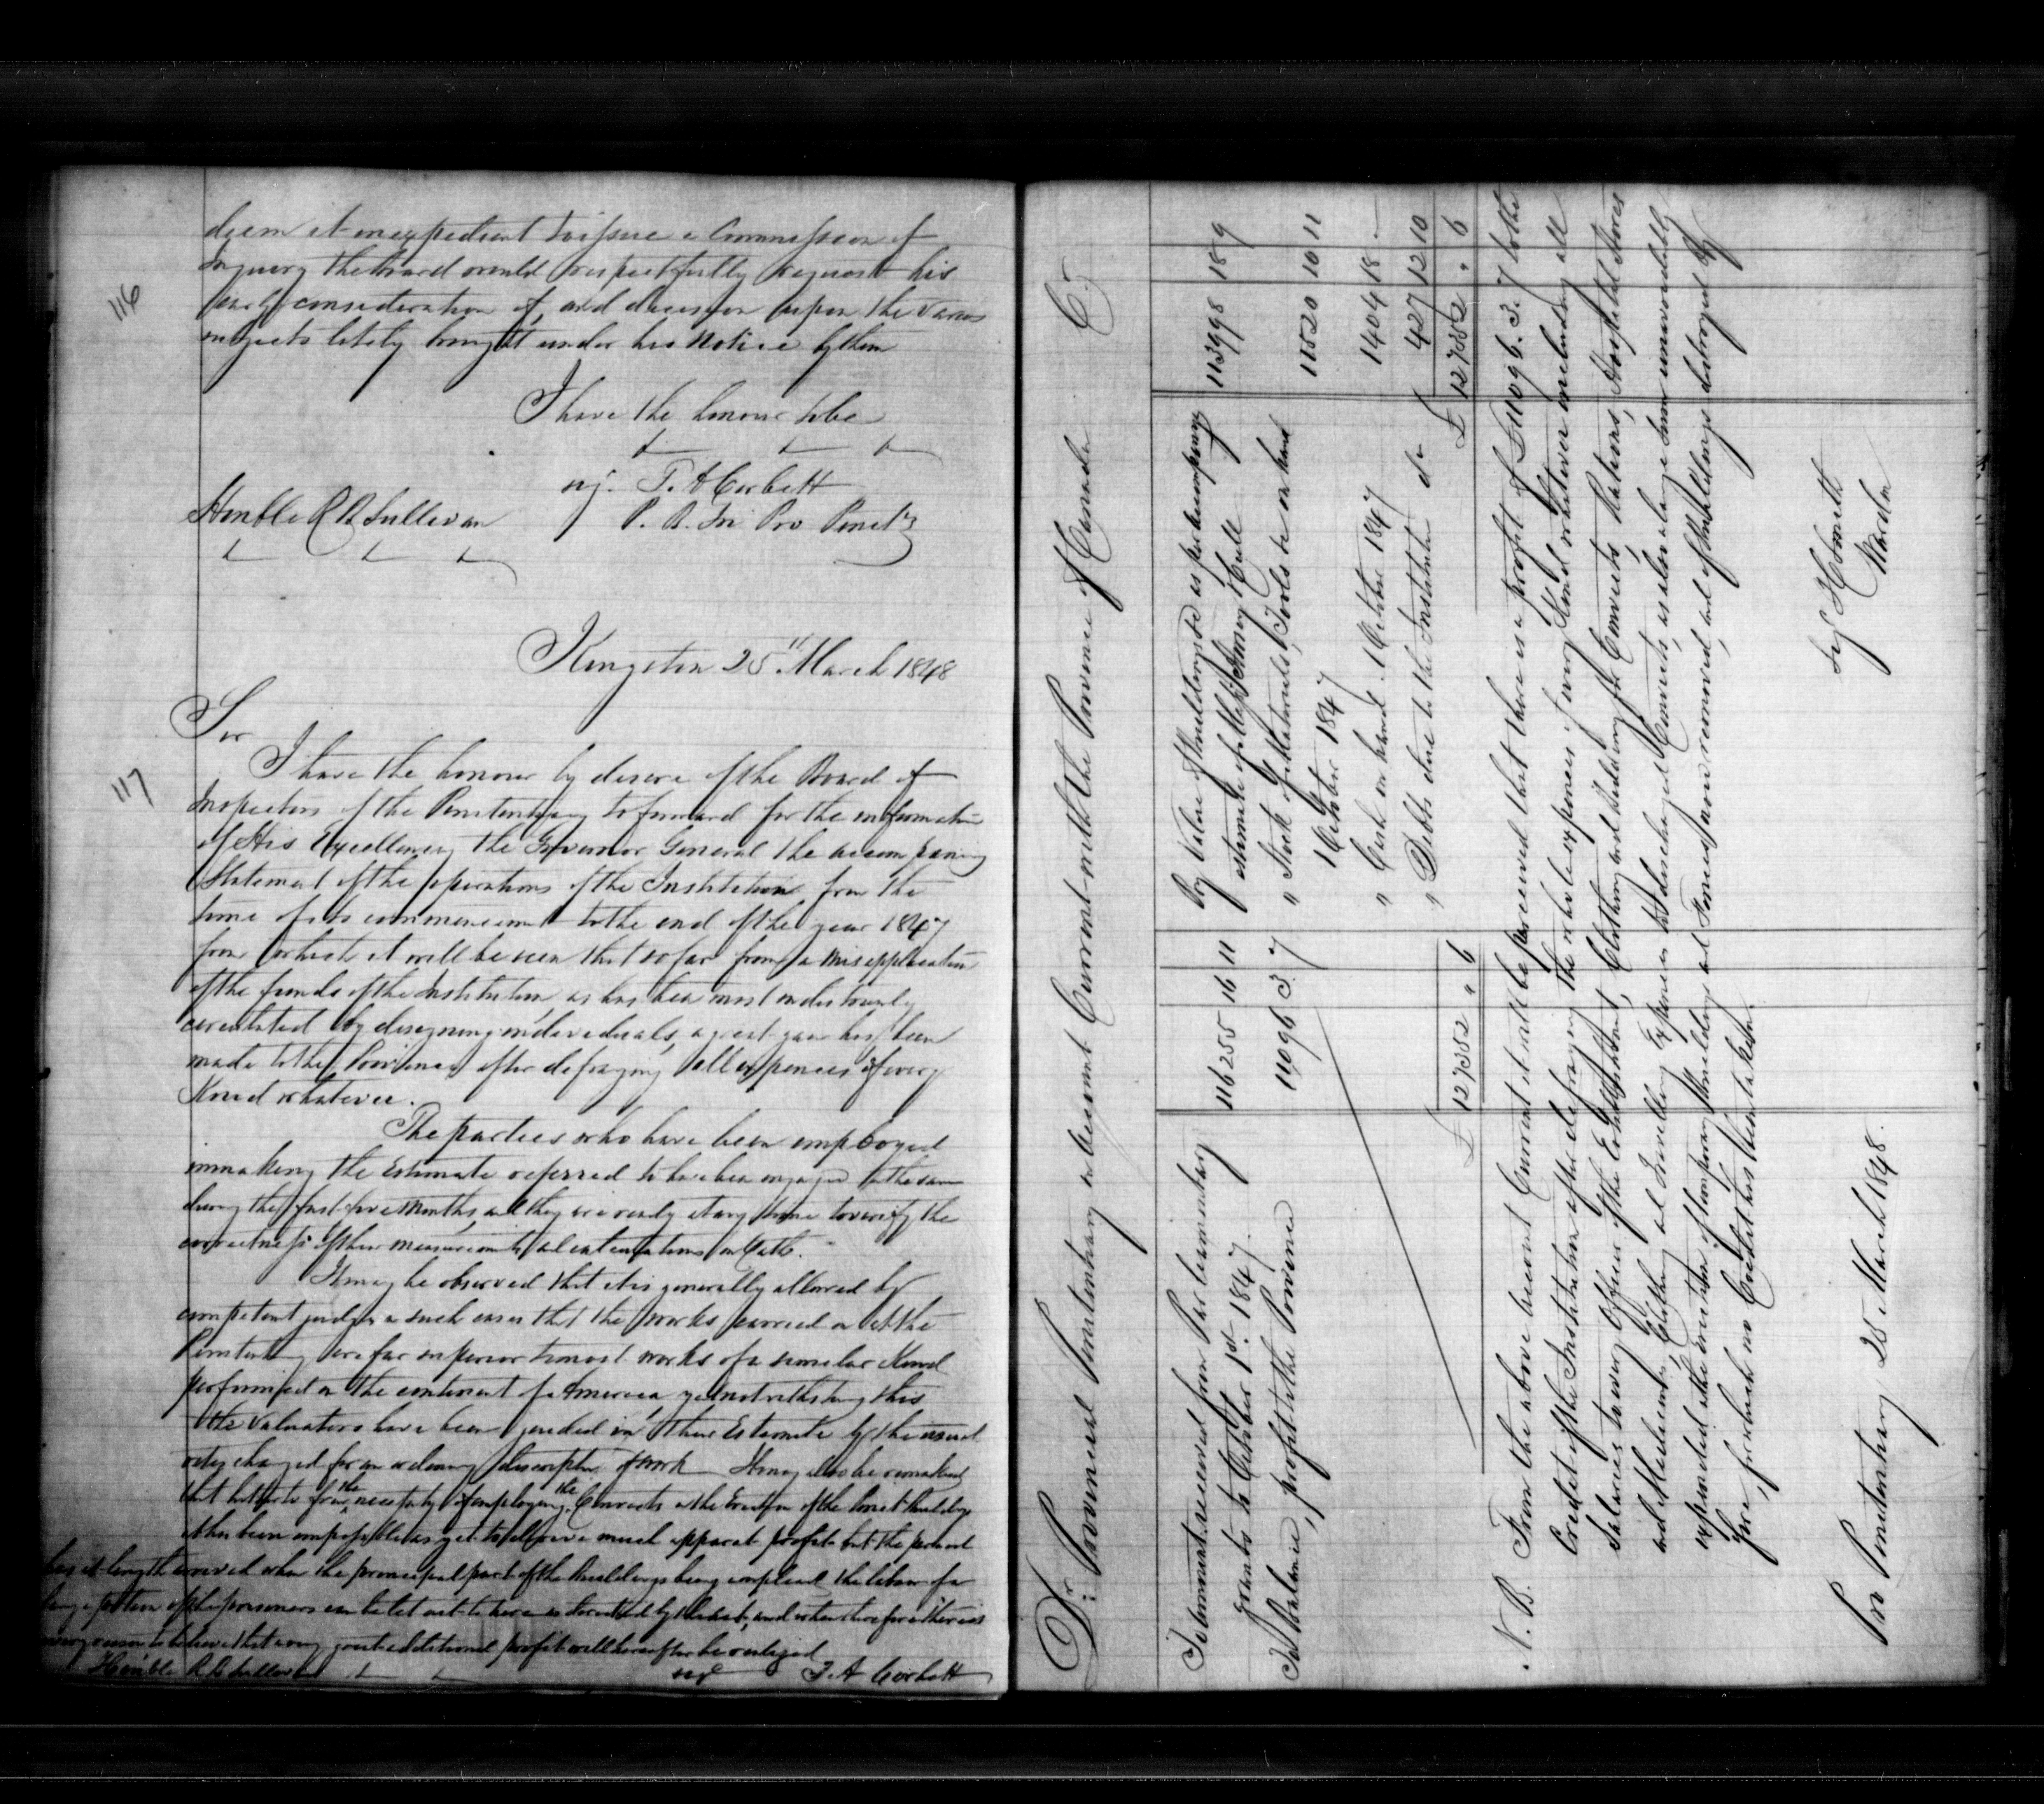 116
deem it inexpedient to issue a Commission of
Inquiry the Board would respectfully request his
early consideration of, and decision upon the various
subjects lately brought under his notice by them
I have the honour to be
T. A Corbett
P. B. In Pro Penet'y
Honble R B Sullivan
Kingston 25" March 1848
117
Sir
I have the honour by desire of the Board of
Inspectors of the Penitentiary to forward for the information
of His Excellency the Governor General the accompaning
Statement of the operations of the Institution from the
time of its commencement to the end of the year 1847
from which it will be seen that so far from a misapplication
of the funds of the Institution, as has been most industriously
circulated by designing individuals, a great gain has been
made to the Province after defraying all expences of every
Kind whatever.
The parties who have been employed
in making the Estimate referred to have been engaged at the same
during the past five months, and they are ready at any time to verify the
correctness of their measurements & calculations on Oath.
It may be observed that it is generally allowed by
competent judges in such cases that the works carried on at the
Penitentiary are far superior to most works of a similar Kind
performed on the continent of America, yet notwithstang this
the valuators have been guided in their Estimate by the usual
rates charged for an ordinary description of work It may also be remarked
that hitherto from the necessity of employing the Convicts in the Erection of the Penet Buildings
it has been impossible as yet to derive much apparent profit but the period
has at length arrived when the principal part of the Buildings being completed the labour of a
large portion of the prisoners can be let out to hire as directed by the Act, and when therefore there is
every reason to believe that a very great additional profit will hereafter be realized
Honble R B Sullivan
sigd T. A Corbett
Dr. Provincial Penitentiary in Account Current with the Province of Canada Cr
To Amount received from Parliamentary
grants to October 1st. 1847. 116255 16 11
To Balance, profit to the Province 11096 3. 7
£ 127352 " 6
By Value of Buildings &c as per accompanying
estimate of Messrs Amey & Cull 113998 18 9
" Stock of Materials, Tools &c on hand
1 October 1847 11520 10 11
" Cash on hand. 1 October 1847 1404 18 -
" Debts due to the Institution do 427 12 10
£ 127352 " 6
N. B. From the above account Current it will be perceived that there is a profit of £11096. 3. 7 to the
Credit of the Institution after defraying the whole expences of every Kind whatever including all
Salaries to every Officer of the Establishment, Clothing and Bedding for Convicts, Rations, Hospital Stores
and Medicines, Clothing and Travelling Expences to discharged Convicts, as also a large sum unavoidably
expended in the erection of temporary Buildings and Fences since removed, and of Buildings destroyed by
fire, for which no Credit has been taken.
Pro Penitentiary 25 March 1848.
H Smith
Warden